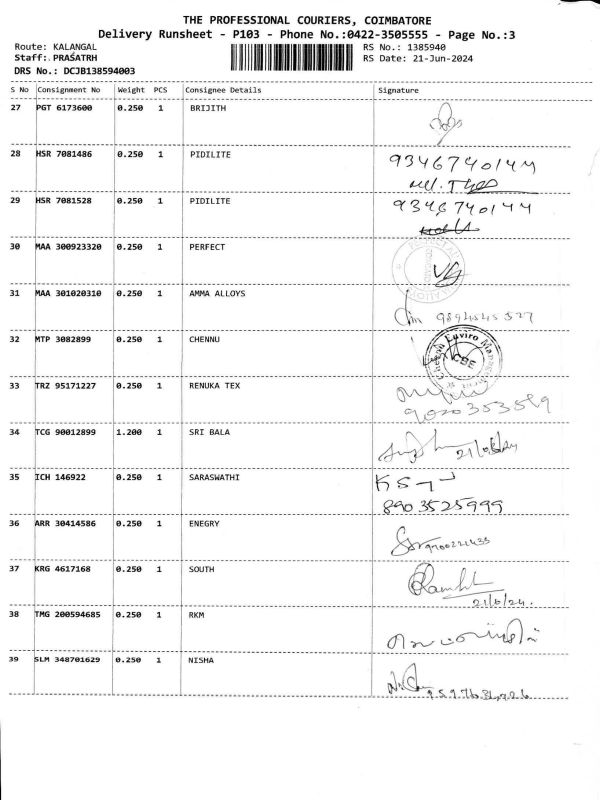 THE PROFESSIONAL COURIERS, COIMBATORE
Delivery Runsheet - P103 - Phone No.:0422-3505555 - Page No.:3
Route: KALANGAL
RS No.: 1385940
Staff: PRASATRH
RS Date: 21-Jun-2024
DRS No.: DCJB138594003
S No Consignment No Weight PCS Consignee Details Signature
27 PGT 6173600 0.250 1 BRIJITH
28 HSR 7081486 0.250 1 PIDILITE 9346740144
29 HSR 7081528 0.250 1 PIDILITE 9346740144
30 MAA 300923320 0.250 1 PERFECT
31 MAA 301020310 0.250 1 AMMA ALLOYS
32 MTP 3082899 0.250 1 CHENNU
Enviro
CBE
33 TRZ 95171227 0.250 1 RENUKA TEX
34 TCG 90012899 1.200 1 SRI BALA
35 ICH 146922 0.250 1 SARASWATHI
8903525999
36 ARR 30414586 0.250 1 ENEGRY
37 KRG 4617168 0.250 1 SOUTH
21/6/24.
38 TMG 200594685 0.250 1 RKM
39 SLM 348701629 0.250 1 NISHA